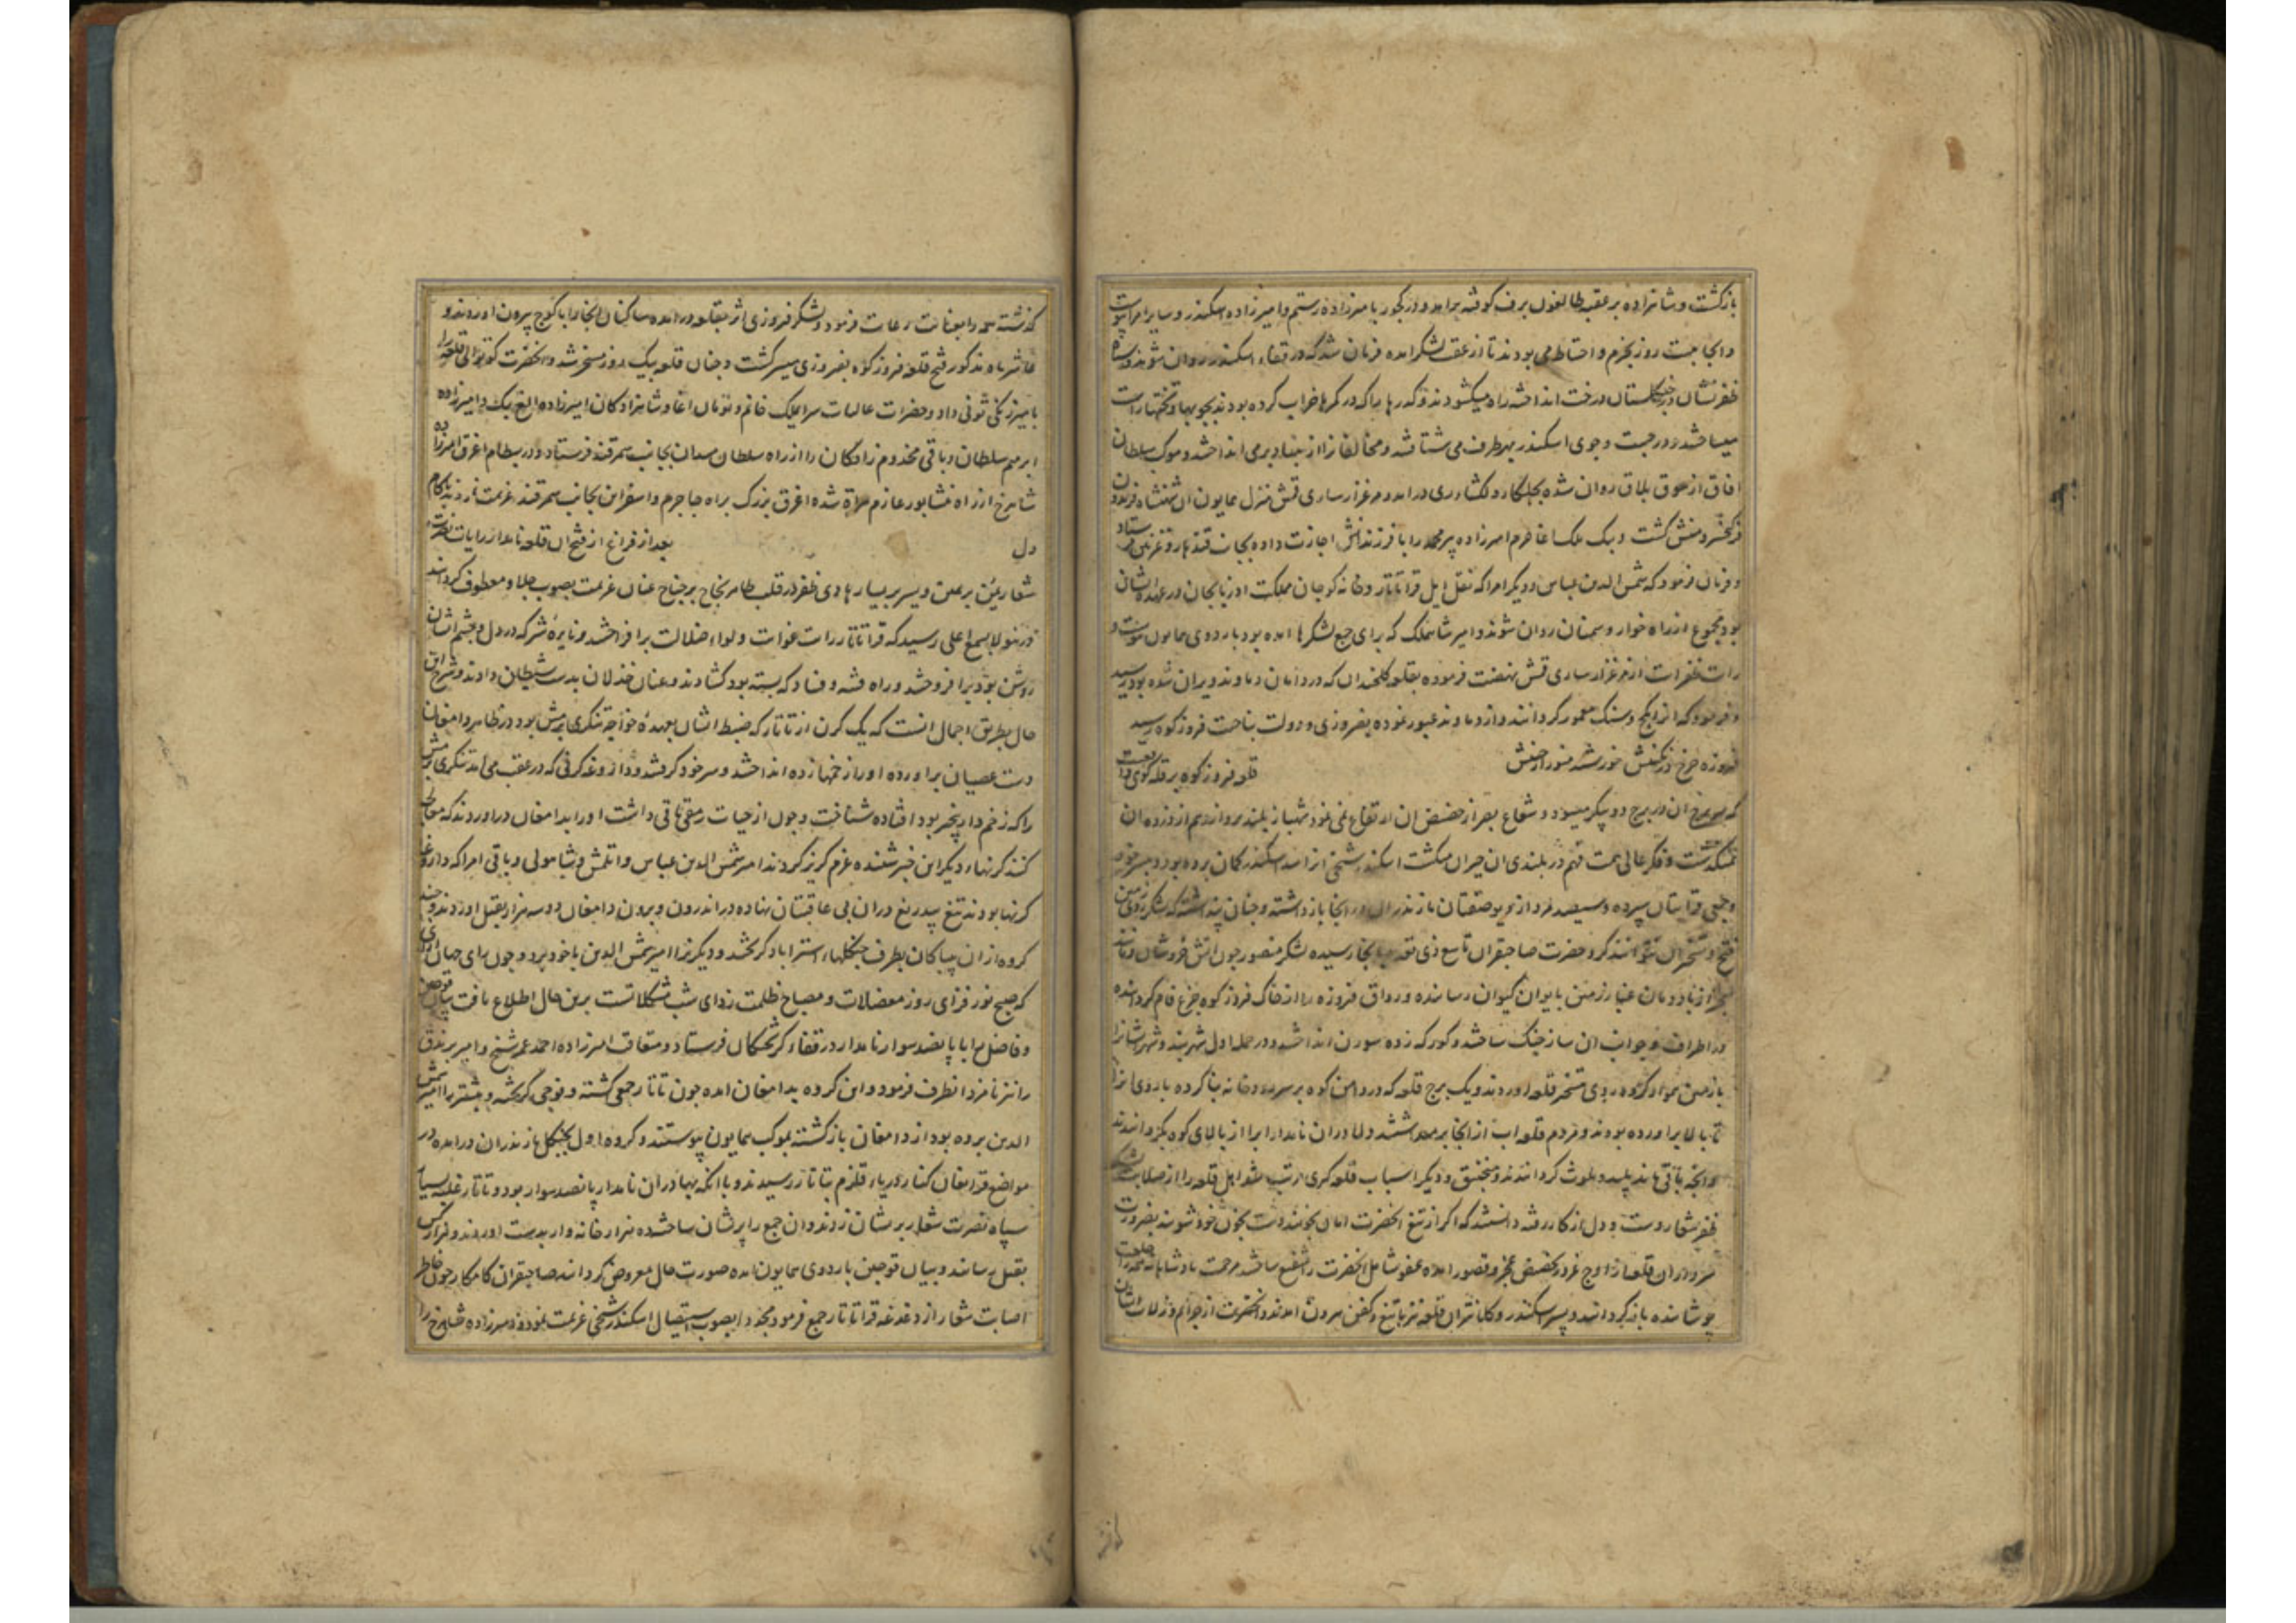 بازگشت و شاهزاده بر عقبه طالغون برف کوفته برامد و از کجور با میرزاده رستم و امیرزاده اسکندر و سایر امرا پیوست
و انجا بیست روز بحزم و احتیاط می بودند تا از عقب لشکر امده فرمان شد که در قفاء اسکندر روان شوند و سپاه
ظفرنشان در جنکلستان درخت انداخته راه میکشودند و کذرها را که در کمرها خراب کرده بودند بچوبها و تختها راست
میساختند و در جست و جوی اسکندر بهر طرف می شتافتند و مخالفان را از بنیاد برمی انداختند و موکب سلطان
افاق از ییلاق روان شده در امد و مرغزار ساری قمش منزل همایون ان شهنشاه فریدون
فر کیخسرو منش کشت و بیک ملک اغا خرم امیرزاده پیر محمد را با فرزندانش اجازت داده بجانب قندهار و غزنین فرستاد
و فرمان فرمود که شمس الدین عباس و دیگر امرا که نقل ایل قراتاتار و خانه کوچان مملکت اذربایجان در عهده ایشان
بود مجموع از راه خوار و سمنان روان شوند و امیر شاهملک که برای جمع لشکرها امده بود باردوی همایون پیوست و
رایت ظفرایت از مرغزار ساری قمش نهضت فرموده بقلعه کلخندان که در دامان دماوند ویران شده بود رسید
و فرمود که انرا بکج و سنک معمور کردانند و از دماوند عبور نموده بفیروزی و دولت بناحیت فیروزکوه رسید
قلعه فیروزکوه بر قله کوهی واقعست
که سر برج ان در برج دو پیکر میسود و شعاع بصر از حضیض ان ارتفاع نمی نمود شهباز بلند پرواز وهم از فرزه ان
نمیکذشت و فکر عالی همت فهم در بلندی ان حیران میکشت اسکندر شیخی انرا سد اسکندر کمان برده بود و پسر خود
و جمعی قرابتان سپرده و سیصد مرد از دیوصفتان مازندران در انجا بازداشته و چنان پنداشته که لشکر روی زمین
فتح و تسخیر ان نتوانند کرد حضرت صاحبقران تاسع ذی قعده بانجا رسیده لشکر منصور چون اتش خروشان
از باد دمان غبار زمین بایوان کیوان رسانده و رواق فیروزه را از خاک فیروز کوه چرخ فام کرداننده
در اطراف و جوانب ان ساز جنک ساختند و کورکه زده سورن انداختند و در حمله اول شهربند و
بازمین هموار کرده روی بتسخیر قلعه اوردند و یک برج قلعه که در دامن کوه بر سر رودخانه بنا کرده باروی انرا
تا بالا براورده بودند و مردم قلعه اب از انجا برمیداشتند دلاوران نامدار ابرا از بالای کوه بکردانیدند
و انچه باقی ماند پلید و ملوث کردانیدند و منجنیق و دیگر اسباب قلعه کیری مرتب شد اهل قلعه را از صلابت
ظفرشعار دست و دل از کار رفته دانستند که اکر از تیغ انحضرت امان نجویند دست بخون خود شویند بضرورت
سرداران قلعه از اوج غرور بحضیض عجز و قصور امده عفو شامل انحضرت را شفیع ساختند مرحمت پادشاهانه همه را خلعت
پوشانیده بازگردانید و پسر اسکندر و کلانتران قلعه نیز با تیغ و کفن بیرون امدند و انحضرت از جرایم و زلات ایشان
کذشته همه را بعنایت رعایت فرمود و لشکر فیروزی اثر بقلعه درامده ساکنان انجا را با کوچ بیرون اوردند و
عاشر ماه مذکور فتح قلعه فیروزکوه بفیروزی میسر کشت و چنان قلعه بیک روز مسخر شد و انحضرت کوتوالی قلعه را
بامیر زنکی تونی داد و حضرات عالیات سرای ملک خانم و تومان اغا و شاهزادکان امیرزاده الغ بیک و امیرزاده
ابرهیم سلطان و باقی مخدوم زادکان را از راه سلطان میدان بجانب سمرقند فرستاد و در بسطام اغرق امیرزاده
شاهرخ از راه نشابور عازم هراة شده اغرق بزرک براه جاجرم و اسفراین بجانب سمرقند عزیمت نمودند بکام
دل بعد از فراغ از فتح ان قلعه نامدار رایات نصرت
شعار یمین بر یمن و یسر بر یسار هادی ظفر در قلب طایر نجاح بر جناح عنان عزیمت بصوب چلاو معطوف کردانید
در ینولا بسمع اعلی رسید که قراتاتار رایت غوایت و لواء ضلالت برافراختند و نایره شر که در دل و چشم ایشان
روشن بود برافروختند و راه فتنه و فساد که بسته بود کشادند و عنان خذلان بدست شیطان دادند و شرح این
حال بطریق اجمال انست که یک کرن از تاتار که ضبط ایشان بعهده خواجه تنکری برمش بود در ظاهر دامغان
دست عصیان براورده او را زخمها زده انداختند و سر خود کرفتند و داروغه کرنی که در عقب می امد تنکری برمش
را که زخم دار بیخبر بود افتاده شناخت و چون از حیات رمقی باقی داشت او را بدامغان دراوردند که معالجه
کنند کرنهاء دیگر این خبر شنیده عزم کریز کردند امیر شمس الدین عباس و اتلمش و شاه ولی و باقی امرا که داروغه
کرنها بودند تیغ بیدریغ دران بی عاقبتان نهاده در اندرون و بیرون دامغان دو سه هزار بقتل اوردند و چند
کروه از ان بیباکان بطرف جنکلهاء استراباد کریختند و دیگرانرا امیر شمس الدین با خود برد و چون رای جهان ارای
که صبح نورفزای روز معضلات و مصباح ظلمت زدای شب مشکلاتست برین حال اطلاع یافت بیان قوجین
و فاضل را با پانصد سوار نامدار در قفاء کریختکان فرستاد و متعاقب امیرزاده احمد عمر شیخ و امیر برندق
را نیز نامزد انطرف فرمود و این کروه بدامغان امده چون تاتار جمعی کشته و فوجی کریخته و بیشتر را امیر شمس
الدین برده بود از دامغان بازکشته بموکب همایون پیوستند و کروه اول بجنکل مازندران درامده در
مواضع قراتغان کنار دریاء قلزم بتاتار رسیدند و با انکه بهادران نامدار پانصد سوار بود و تاتار غلبه بسیار
سپاه نصرت شعار بریشان زدند و ان جمع را پریشان ساخته ده هزار خانه وار بدست اوردند و هزار کس
بقتل رسانند و بیان قوجین باردوی همایون امده صورت حال معروض کردانید صاحبقران کامکار چون خاطر
اصابت شعار از دغدغه قراتاتار جمع فرمود مجددا بصوب استیصال اسکندر شیخی عزیمت نمود و امیرزاده شاهرخ را